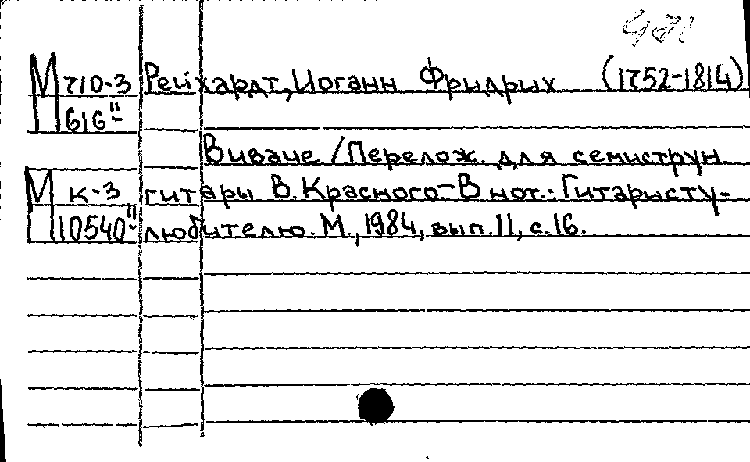 М 710-3 Рейхардт, Иоганн Фридрих (1752-1814)
616"
Виваче / Перелож. для семиструн
М к-3 гитары В. Красного-В нот.: Гитаристу-
10540" любителю. М., 1984, вып. 11, с. 16.